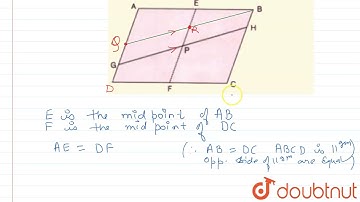 A E B
Q R H
G P
D F C
E is the midpoint of AB
F is the midpoint of DC
AE = DF (∵ AB = DC ABCD is ||gm
opp. side of ||gm are equal)
doubtnut